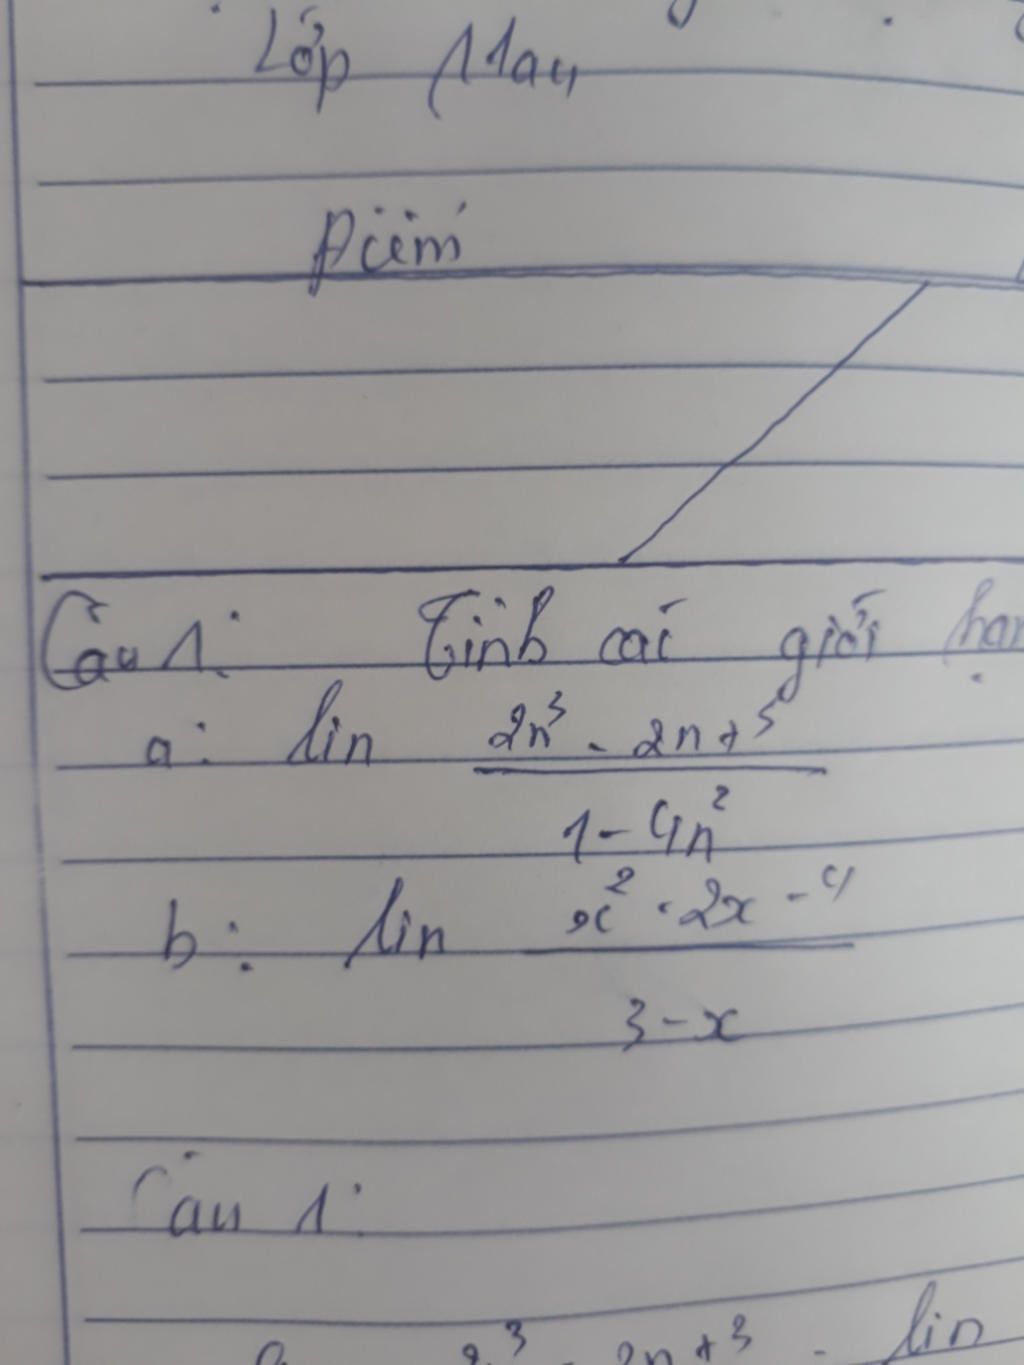 Lớp 11a4
Điểm
Câu 1: Tính các giới hạn
a: lin 2n³ - 2n + 5
1 - 4n²
b: lin x² - 2x - 4
3 - x
Câu 1:
2n + 3 - lin